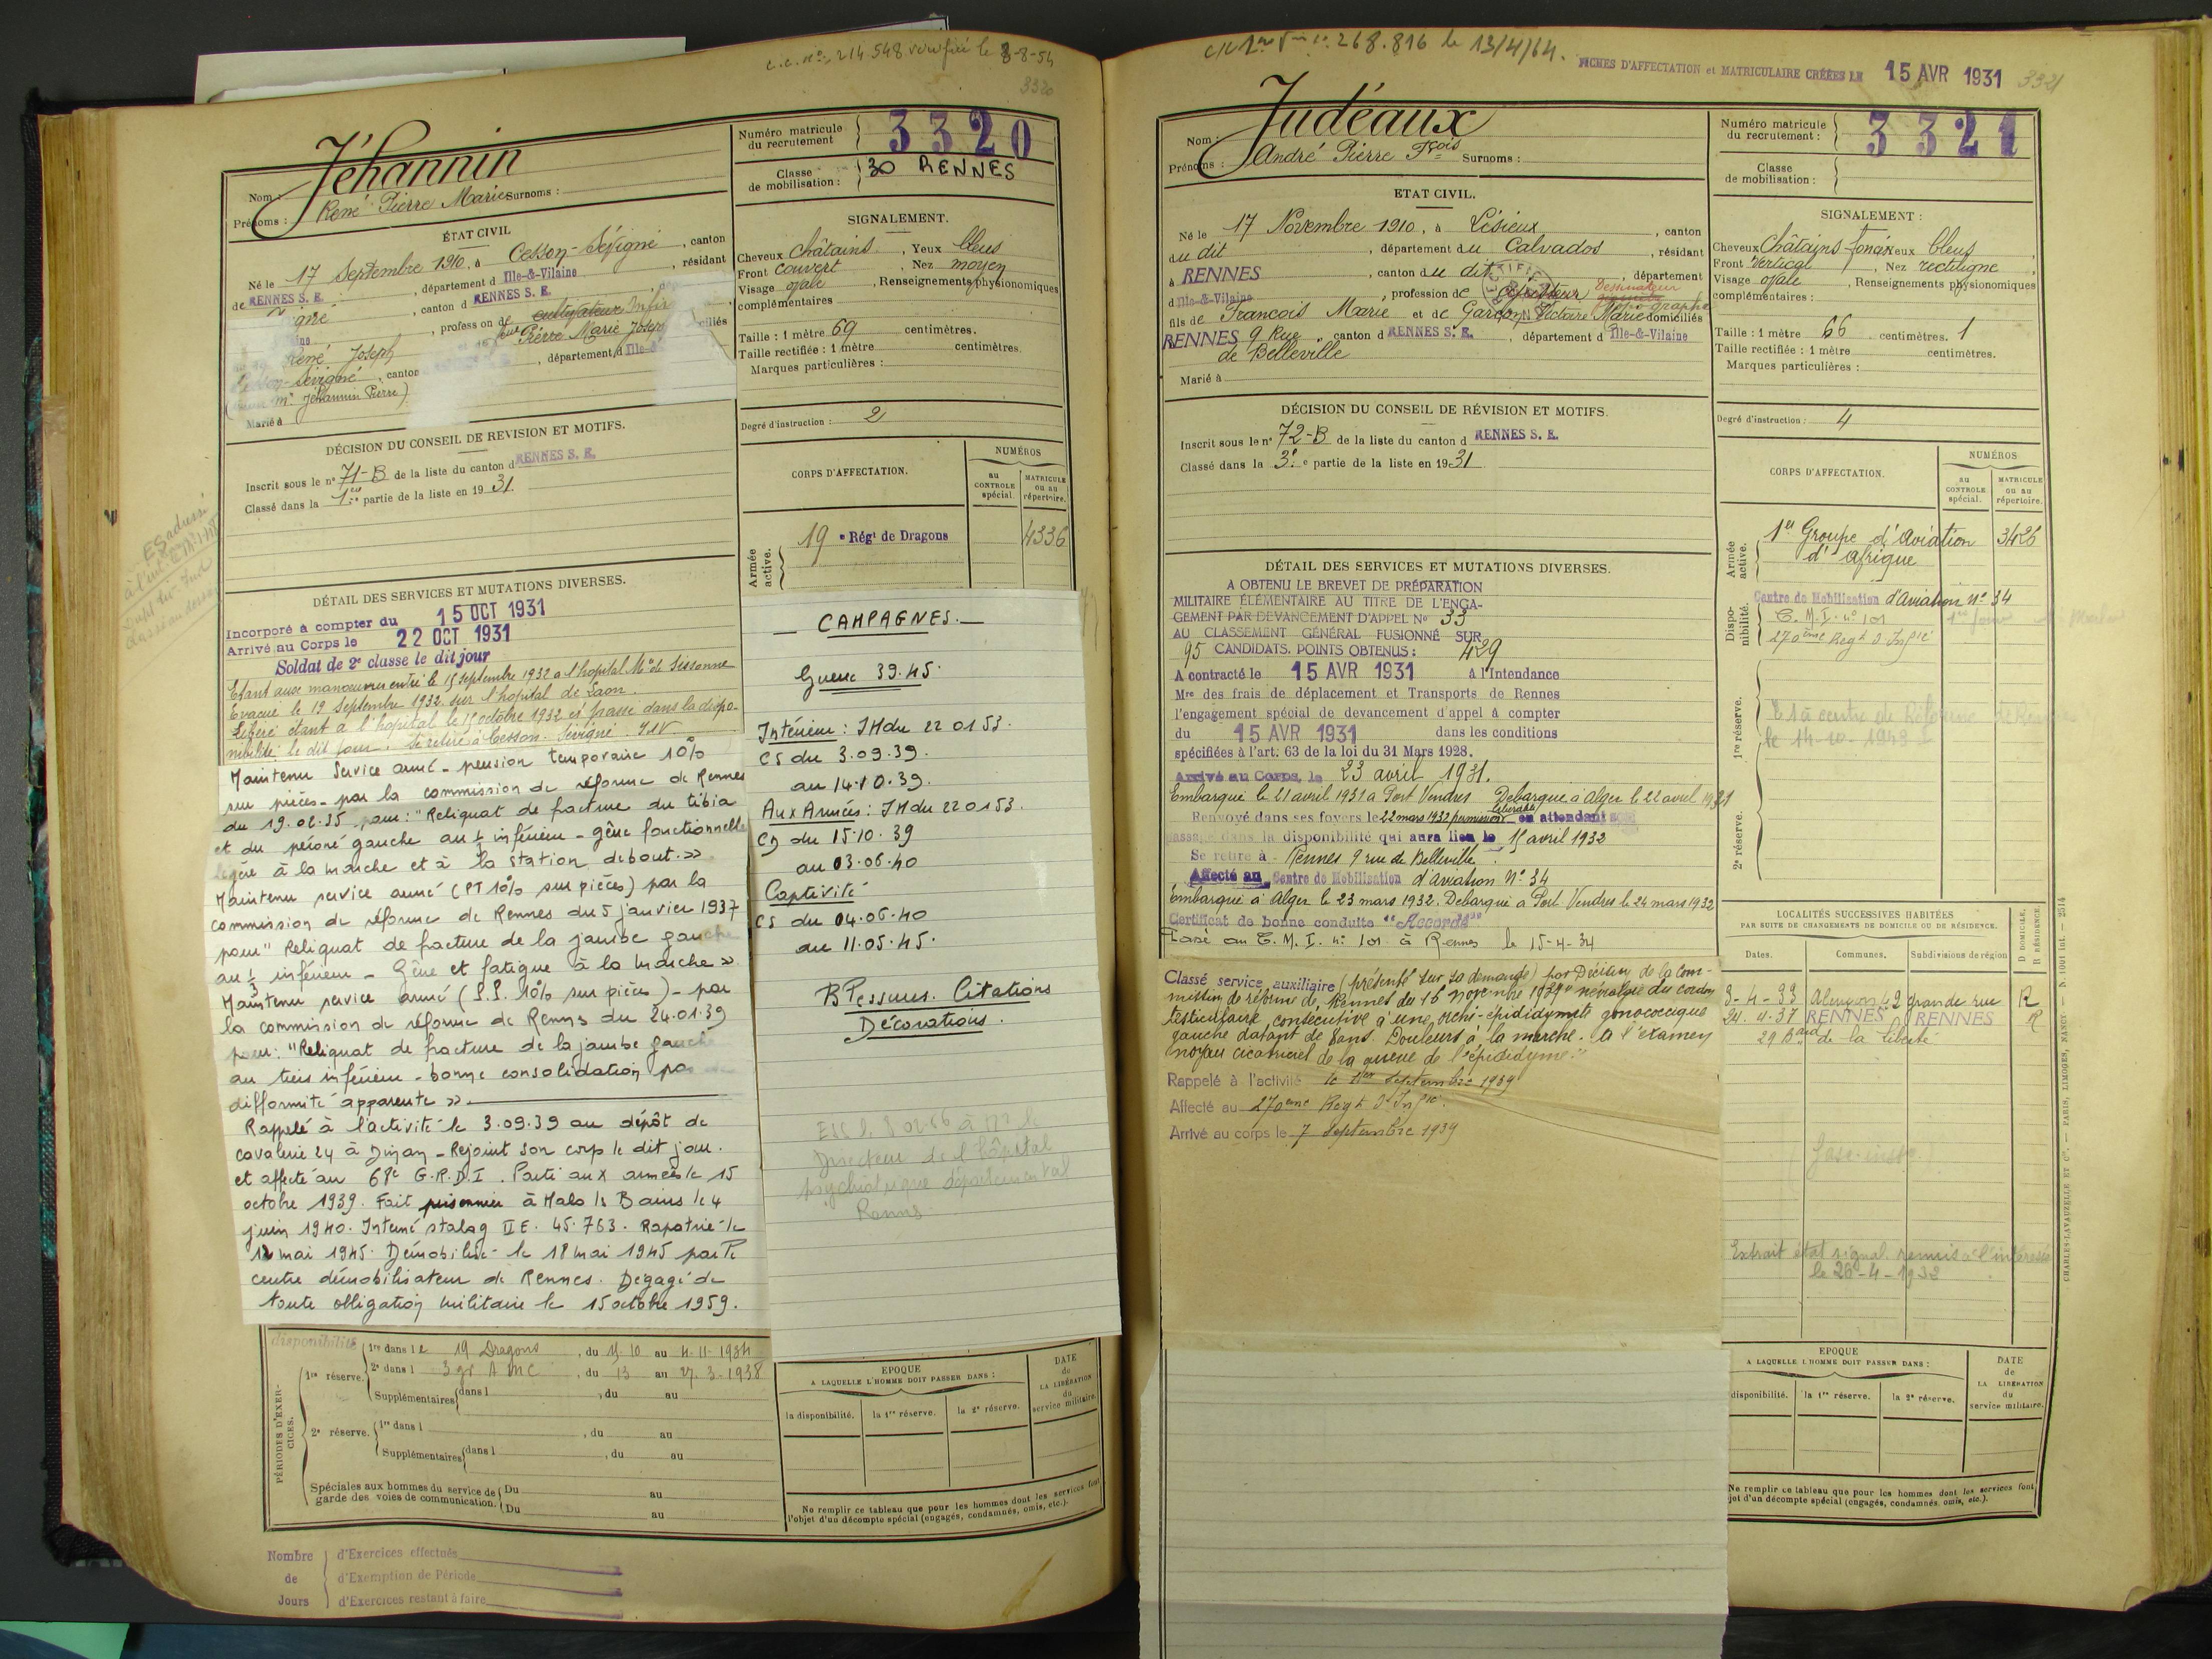 c.c. n° 214 548 vérifié le 3-8-54
3320
Nom : Jéhannin
Prénoms : René Pierre Marie Surnoms :
Numéro matricule du recrutement 3320
Classe de mobilisation : 30 RENNES
ÉTAT CIVIL
Né le 17 Septembre 1910, à Cesson-Sévigné, canton
de RENNES S. E., département d Ille-&-Vilaine, résidant
gné, canton d RENNES S. E.
, profession de cultivateur
René Joseph Pierre Marie Joseph ciliés
Cesson-Sévigné, canton , département d Ille-&
Jéhannin Pierre)
Marié à
SIGNALEMENT.
Cheveux châtains, Yeux bleus
Front couvert, Nez moyen
Visage ovale, Renseignements physionomiques
complémentaires
Taille : 1 mètre 69 centimètres.
Taille rectifiée : 1 mètre centimètres.
Marques particulières :
Degré d'instruction : 2
DÉCISION DU CONSEIL DE REVISION ET MOTIFS.
Inscrit sous le n° 71-B de la liste du canton d RENNES S. E.
Classé dans la 1ere partie de la liste en 1931.
CORPS D'AFFECTATION.
NUMÉROS
au CONTROLE spécial.
MATRICULE ou au répertoire.
Armée active.
19e Régt de Dragons 4336
ES adressé
à l'int
DÉTAIL DES SERVICES ET MUTATIONS DIVERSES.
Incorporé à compter du 15 OCT 1931
Arrivé au Corps le 22 OCT 1931
Soldat de 2e classe le dit jour
Etant aux manœuvres entré le 15 septembre 1932 à l'hopital Mre de Sissonne
Evacué le 19 Septembre 1932 sur l'hopital de Laon.
Libéré étant à l'hopital le 15 octobre 1932 et passe dans la dispo-
nibilité le dit jour. Se retire à Cesson-Sévigné. I&V
Maintenu Service armé - pension temporaire 10%
sur pièces - par la commission de réforme de Rennes
du 19.02.35 pour : "Reliquat de fracture du tibia
et du péroné gauche au 1/3 inférieur - gêne fonctionnelle
légère à la marche et à la station debout."
Maintenu service armé (PT 10% sur pièces) par la
commission de réforme de Rennes du 5 janvier 1937
pour "Reliquat de fracture de la jambe gauche
au 1/3 inférieur - Gêne et fatigue à la marche"
Maintenu service armé (P.P. 10% sur pièces) - par
la commission de réforme de Rennes du 24.01.39
pour : "Reliquat de fracture de la jambe gauche
au tiers inférieur - bonne consolidation pas
difformité apparente"
Rappelé à l'activité le 3.09.39 au dépôt de
cavalerie 24 à Dinan - Rejoint son corps le dit jour.
et affecté au 68e G.R.D.I. Parti aux armées le 15
octobre 1939. Fait prisonnier à Malo les Bains le 4
juin 1940. Interné stalag II E. 45.763. Rapatrié le
12 mai 1945. Démobilisé le 18 mai 1945 par le
centre démobilisateur de Rennes. Dégagé de
toute obligation militaire le 15 octobre 1959.
CAMPAGNES.
Guerre 39.45.
Intérieur : IM du 22 01 53.
CS du 3.09.39.
au 14.10.39.
Aux Armées : IM du 22 01 53.
CD du 15.10.39
au 03.06.40
Captivité
CS du 04.06.40
au 11.05.45.
Blessures. Citations
Décorations.
Directeur de l'hôpital
psychiatrique départemental
Rennes
disponibilité
PÉRIODES D'EXERCICES.
1re réserve.
1re dans le 19 Dragons, du 15.10 au 4-11-1934
2e dans l 3 gr A M C, du 13 au 27.3-1938
Supplémentaires dans l , du au
2e réserve.
1re dans l , du au
Supplémentaires dans l , du au
Spéciales aux hommes du service de garde des voies de communication. Du au
Du au
EPOQUE
A LAQUELLE L'HOMME DOIT PASSER DANS :
la disponibilité. la 1re réserve. la 2e réserve.
DATE de LA LIBÉRATION du service militaire.
Ne remplir ce tableau que pour les hommes dont les services font
l'objet d'un décompte spécial (engagés, condamnés, omis, etc.).
Nombre de Jours
d'Exercices effectués
d'Exemption de Période
d'Exercices restant à faire
268.816 le 13/4/64.
FICHES D'AFFECTATION et MATRICULAIRE CRÉÉES LE 15 AVR 1931
3321
Nom : Judéaux
Prénoms : André Pierre Fçois Surnoms :
Numéro matricule du recrutement : 3321
Classe de mobilisation :
ETAT CIVIL.
Né le 17 Novembre 1910, à Lisieux, canton
du dit, département du Calvados, résidant
à RENNES, canton du dit, département
d Ille-&-Vilaine, profession de Dessinateur
Topographe
fils de François Marie et de Garçon Victoire Marie domiciliés
RENNES 9 Rue, canton d RENNES S. E., département d Ille-&-Vilaine
de Belleville
Marié à
SIGNALEMENT :
Cheveux Châtains foncés Yeux bleus
Front Vertical, Nez rectiligne
Visage ovale, Renseignements physionomiques
complémentaires :
Taille : 1 mètre 66 centimètres. 1
Taille rectifiée : 1 mètre centimètres.
Marques particulières :
Degré d'instruction : 4
DÉCISION DU CONSEIL DE RÉVISION ET MOTIFS.
Inscrit sous le n° 72-B de la liste du canton d RENNES S. E.
Classé dans la 3e partie de la liste en 1931
CORPS D'AFFECTATION.
NUMÉROS
au CONTROLE spécial.
MATRICULE ou au répertoire.
Armée active.
1er Groupe d'Aviation 3426
d'Afrique
Disponibilité.
Centre de Mobilisation d'Aviation N° 34
C. M. I. n° 101
270ème Regt d'Infie
1re réserve.
centre de Réforme
le 14-10-1943
2e réserve.
DÉTAIL DES SERVICES ET MUTATIONS DIVERSES.
A OBTENU LE BREVET DE PRÉPARATION
MILITAIRE ÉLÉMENTAIRE AU TITRE DE L'ENGA-
GEMENT PAR DEVANCEMENT D'APPEL N° 33
AU CLASSEMENT GÉNÉRAL FUSIONNÉ SUR
95 CANDIDATS. POINTS OBTENUS : 429
A contracté le 15 AVR 1931 à l'Intendance
Mre des frais de déplacement et Transports de Rennes
l'engagement spécial de devancement d'appel à compter
du 15 AVR 1931 dans les conditions
spécifiées à l'art. 63 de la loi du 31 Mars 1928.
Arrivé au Corps, le 23 avril 1931.
Embarqué le 21 avril 1931 à Port Vendres Débarqué à Alger le 22 avril 1931
Renvoyé dans ses foyers le 22 mars 1932 permission libérable en attendant son
passage dans la disponibilité qui aura lieu le 15 avril 1932
Se retire à Rennes 9 rue de Belleville.
Affecté au Centre de Mobilisation d'aviation N° 34
Embarqué à Alger le 23 mars 1932. Débarqué à Port Vendres le 24 mars 1932
Certificat de bonne conduite "Accordé"
Passé au C. M. I. n° 101 à Rennes le 15-4-34
Classé service auxiliaire (présenté sur sa demande) par Décision de la Com-
mission de réforme de Rennes du 16 novembre 1939 "névralgie du cordon
testiculaire consécutive à une orchi-épididymite gonococcique
gauche datant de 8 ans. Douleurs à la marche. A l'examen
noyau cicatriciel de la queue de l'épididyme."
Rappelé à l'activité le 1er septembre 1939
Affecté au 270ème Regt d'Infie.
Arrivé au corps le 7 Septembre 1939
LOCALITÉS SUCCESSIVES HABITÉES
PAR SUITE DE CHANGEMENTS DE DOMICILE OU DE RÉSIDENCE.
Dates. Communes. Subdivisions de région D DOMICILE. R RÉSIDENCE.
9-4-33 Alençon 42 grande rue R
24.4.37 RENNES RENNES R
29 Bard de la liberté
Extrait état signal. remis à l'intéressé
EPOQUE
A LAQUELLE L'HOMME DOIT PASSER DANS :
disponibilité. la 1re réserve. la 2e réserve.
DATE de LA LIBÉRATION du service militaire.
Ne remplir ce tableau que pour les hommes dont les services font
jet d'un décompte spécial (engagés, condamnés, omis, etc.).
CHARLES-LAVAUZELLE ET Cie. — PARIS, LIMOGES, NANCY — N. 1001 Int. — 2514